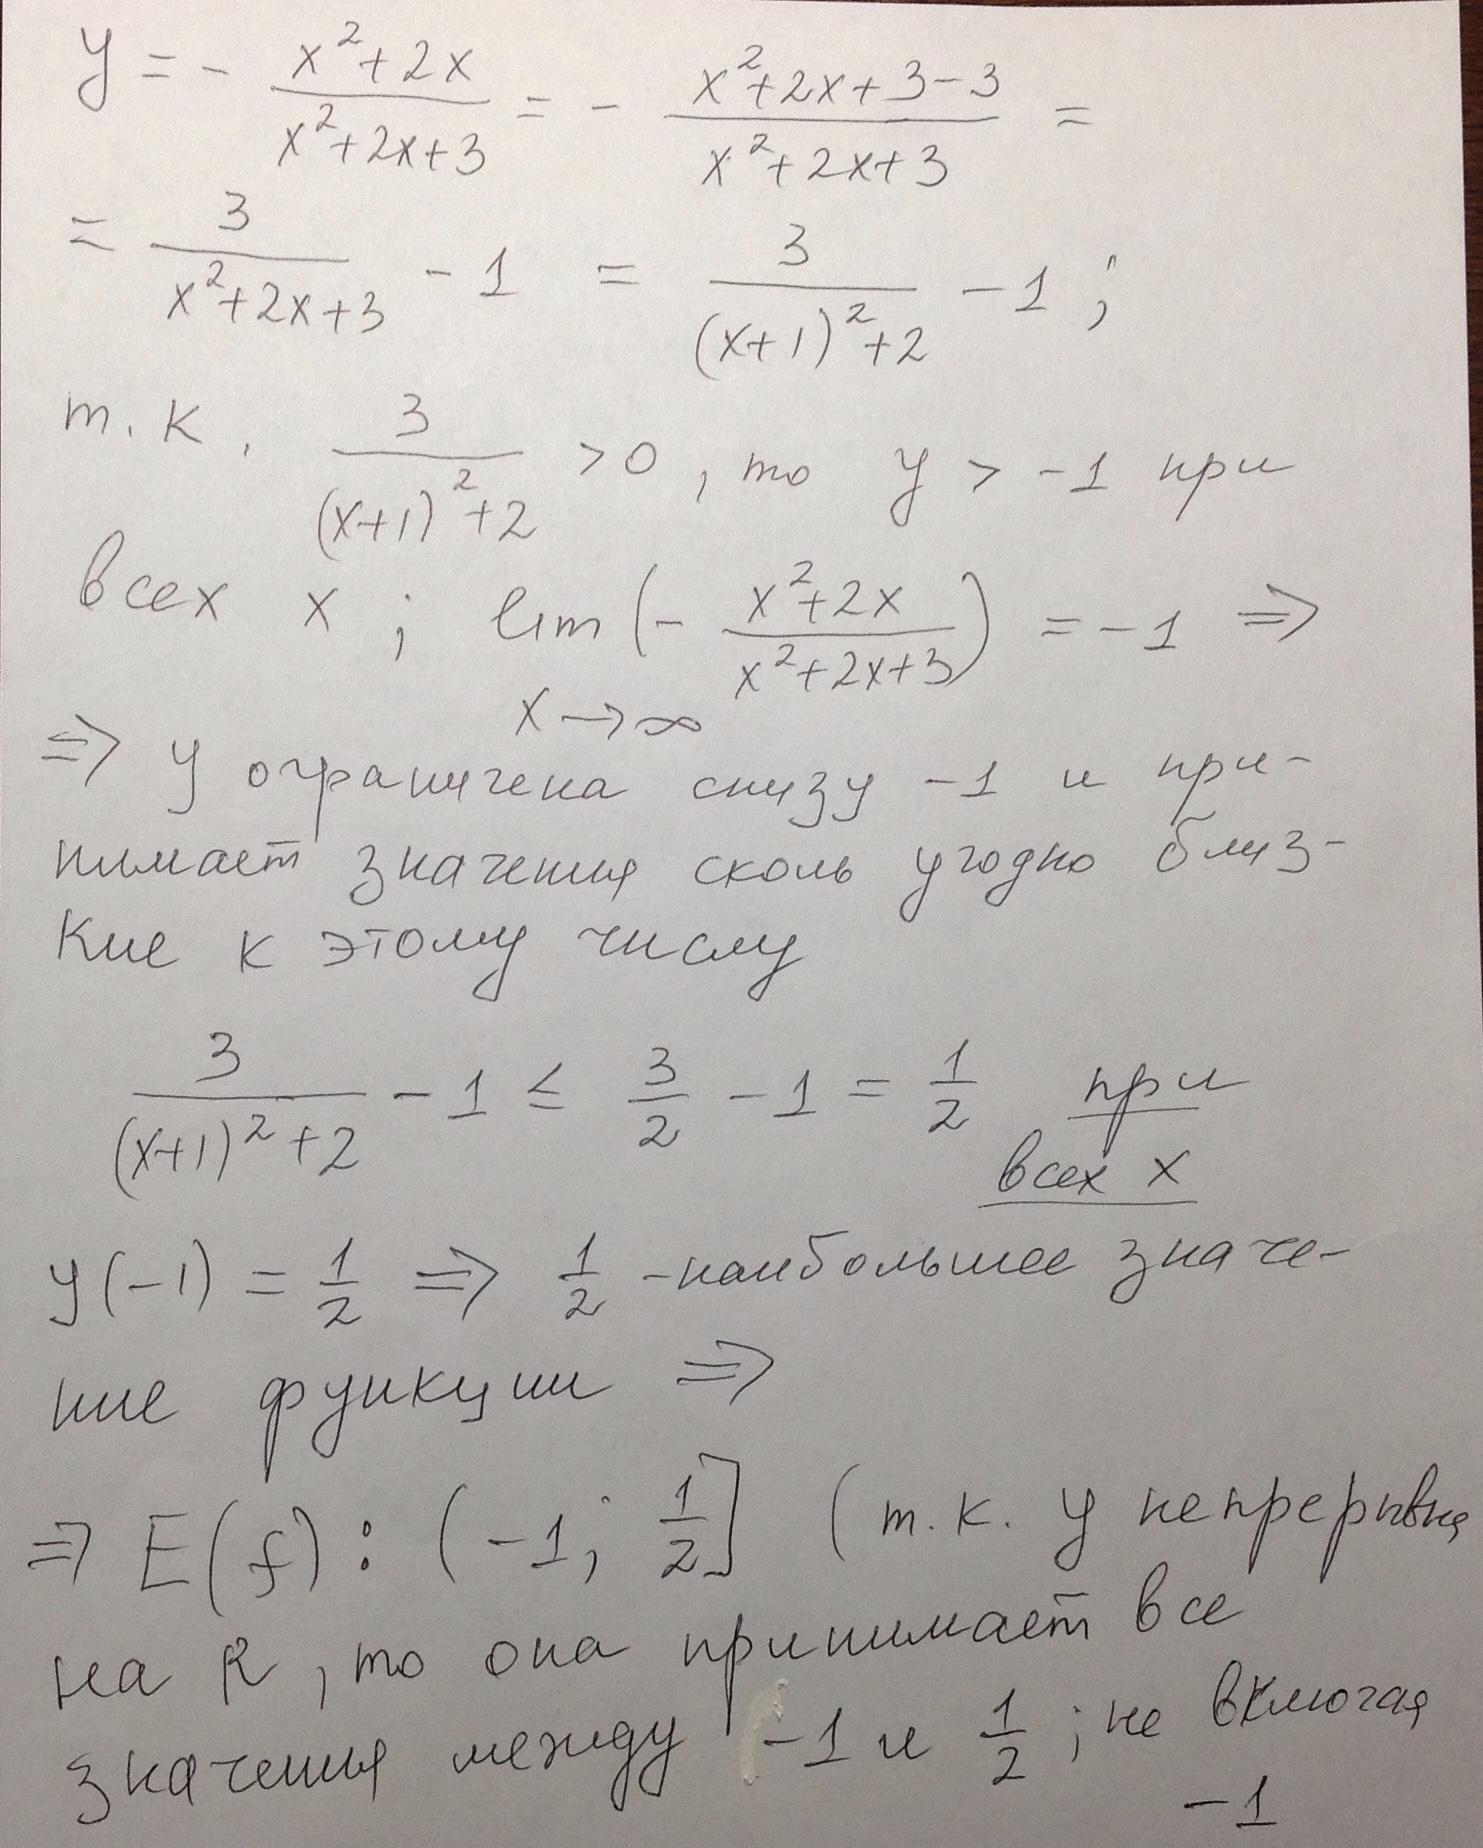 y = - (x²+2x)/(x²+2x+3) = - (x²+2x+3-3)/(x²+2x+3) =
= 3/(x²+2x+3) - 1 = 3/((x+1)²+2) - 1 ;
т.к. 3/((x+1)²+2) > 0, то y > -1 при
всех x ; lim (- (x²+2x)/(x²+2x+3)) = -1 ⇒
x → ∞
⇒ y ограничена снизу -1 и при-
нимает значения сколь угодно близ-
кие к этому числу
3/((x+1)²+2) - 1 ≤ 3/2 - 1 = 1/2 при
всех x
y(-1) = 1/2 ⇒ 1/2 - наибольшее значе-
ние функции ⇒
⇒ E(f) : (-1; 1/2] (т.к. y непрерывна
на R, то она принимает все
значения между -1 и 1/2 ; не включая
-1